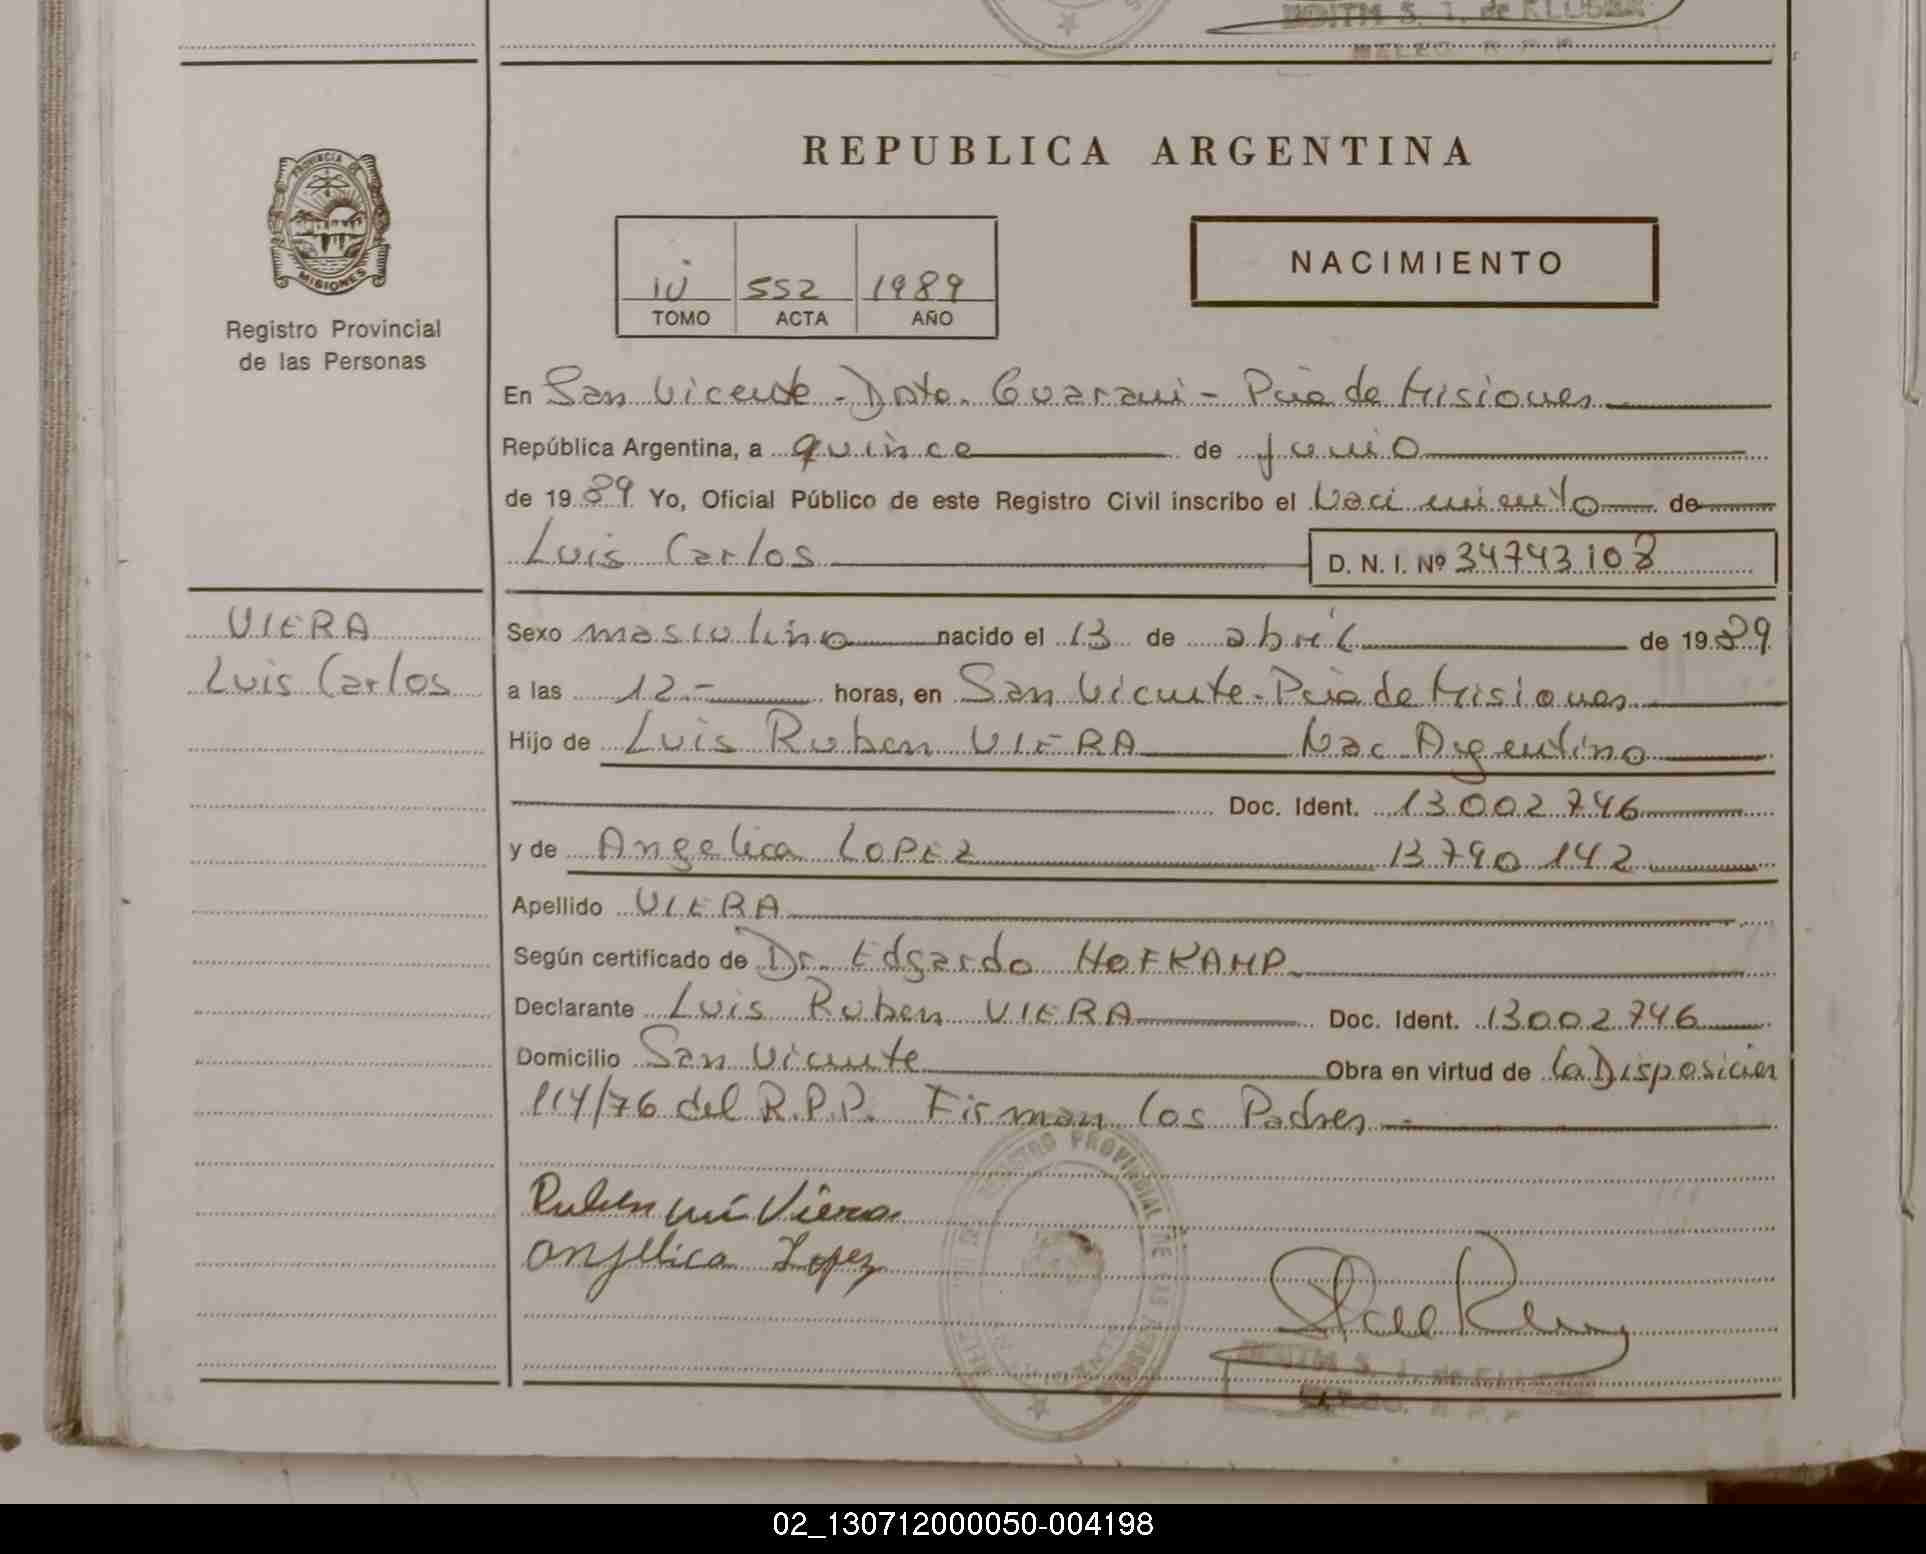 EDITH S. I. de KLUSKA
R. P. P.
PROVINCIA DE
MISIONES
Registro Provincial
de las Personas
REPUBLICA ARGENTINA
NACIMIENTO
552 1989
TOMO ACTA AÑO
En San Vicente - Dpto. Guarani - Pcia de Misiones
República Argentina, a quince de junio
de 1989 Yo, Oficial Público de este Registro Civil inscribo el Nacimiento de
Luis Carlos D. N. I. Nº 34743108
VIERA
Luis Carlos
Sexo masculino nacido el 13 de abril de 1989
a las 12.- horas, en San Vicente - Pcia de Misiones
Hijo de Luis Ruben VIERA Nac Argentino
Doc. Ident. 13.002.746
y de Angelica LOPEZ 13.790.142
Apellido VIERA
Según certificado de Dr. Edgardo HOFKAMP
Declarante Luis Ruben VIERA Doc. Ident. 13.002.746
Domicilio San Vicente Obra en virtud de la Disposicion
114/76 del R.P.P. Firman los Padres -
REGISTRO PROVINCIAL DE LAS PERSONAS
Ruben Viera
Angelica Lopez
R. P. P.
02_130712000050-004198